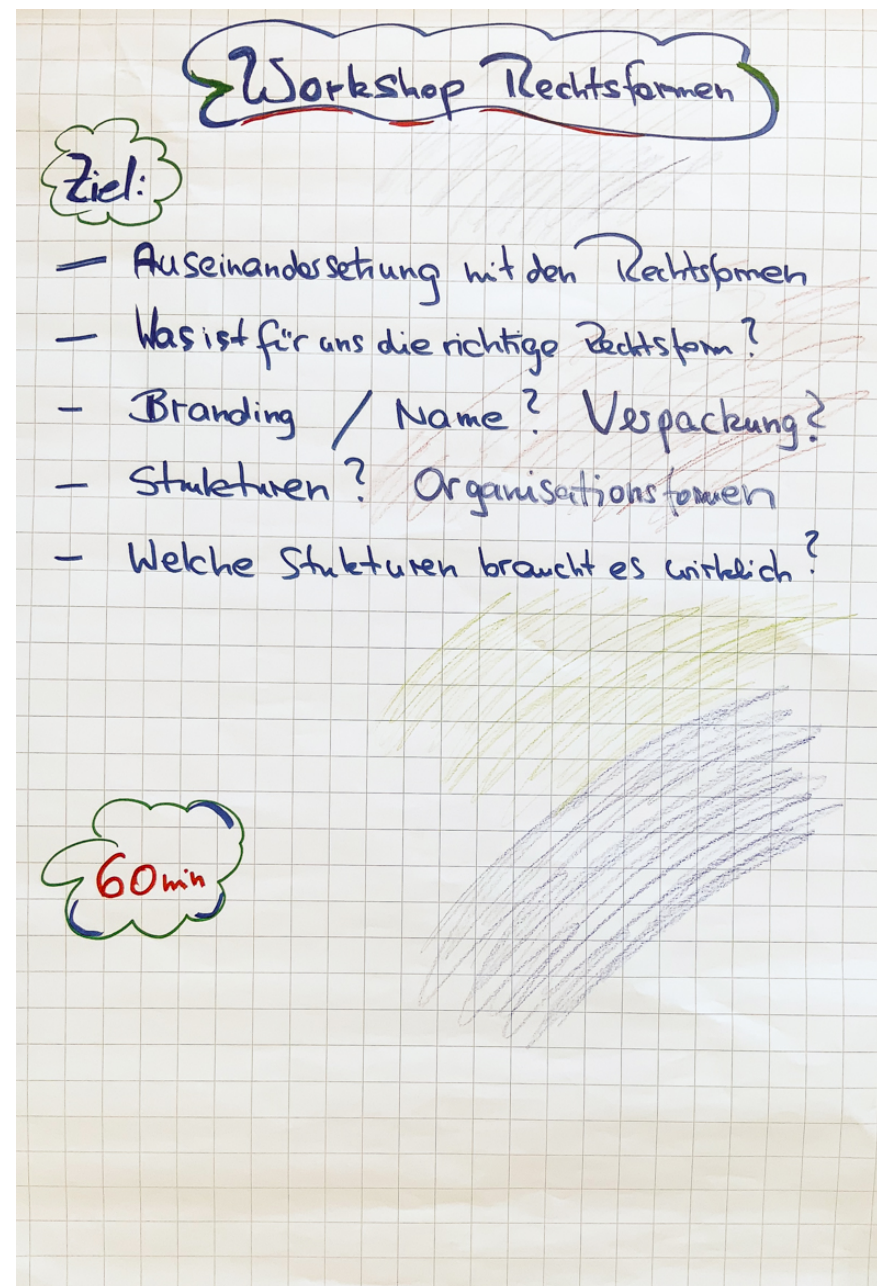 Workshop Rechtsformen
Ziel:
— Auseinandersetzung mit den Rechtsformen
— Was ist für uns die richtige Rechtsform?
- Branding / Name? Verpackung?
- Strukturen? Organisationsformen
- Welche Strukturen braucht es wirklich?
60 min